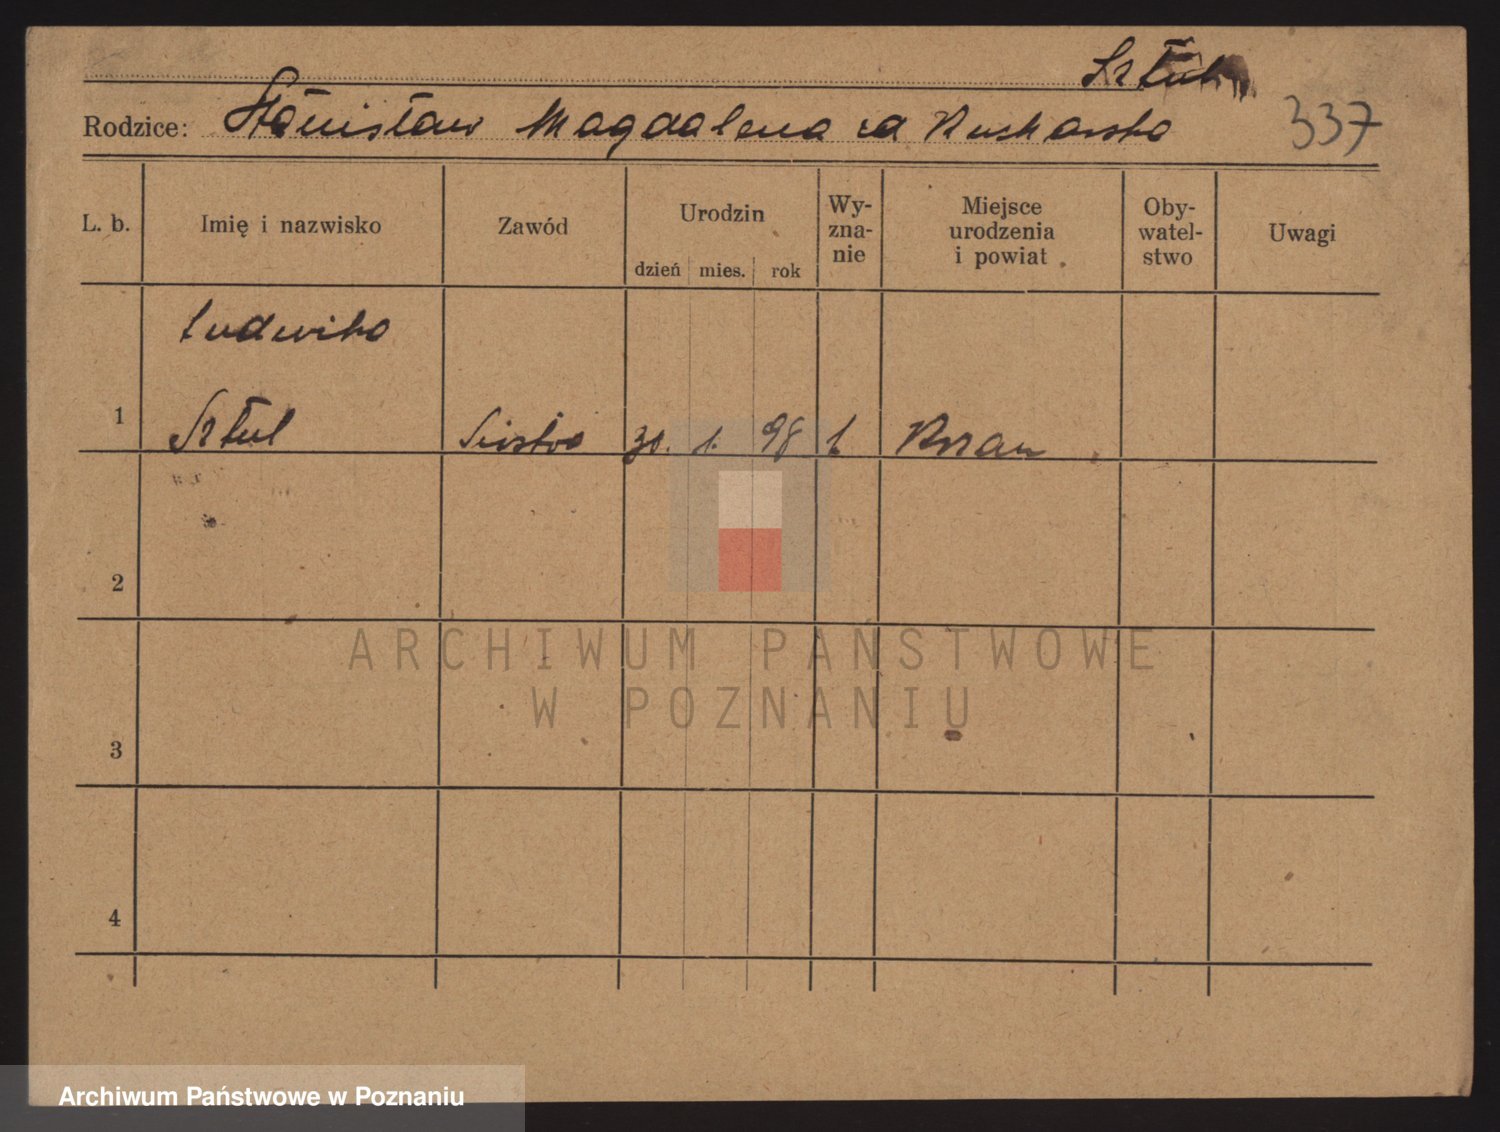 Sztul
Rodzice: Stanisław Magdalena zd Kucharska 337
L. b. Imię i nazwisko Zawód Urodzin dzień mies. rok Wy-zna-nie Miejsce urodzenia i powiat Oby-watel-stwo Uwagi
Ludwika
1 Sztul Siostra 30. 1. 98
2
3
4
ARCHIWUM PAŃSTWOWE
W POZNANIU
Archiwum Państwowe w Poznaniu